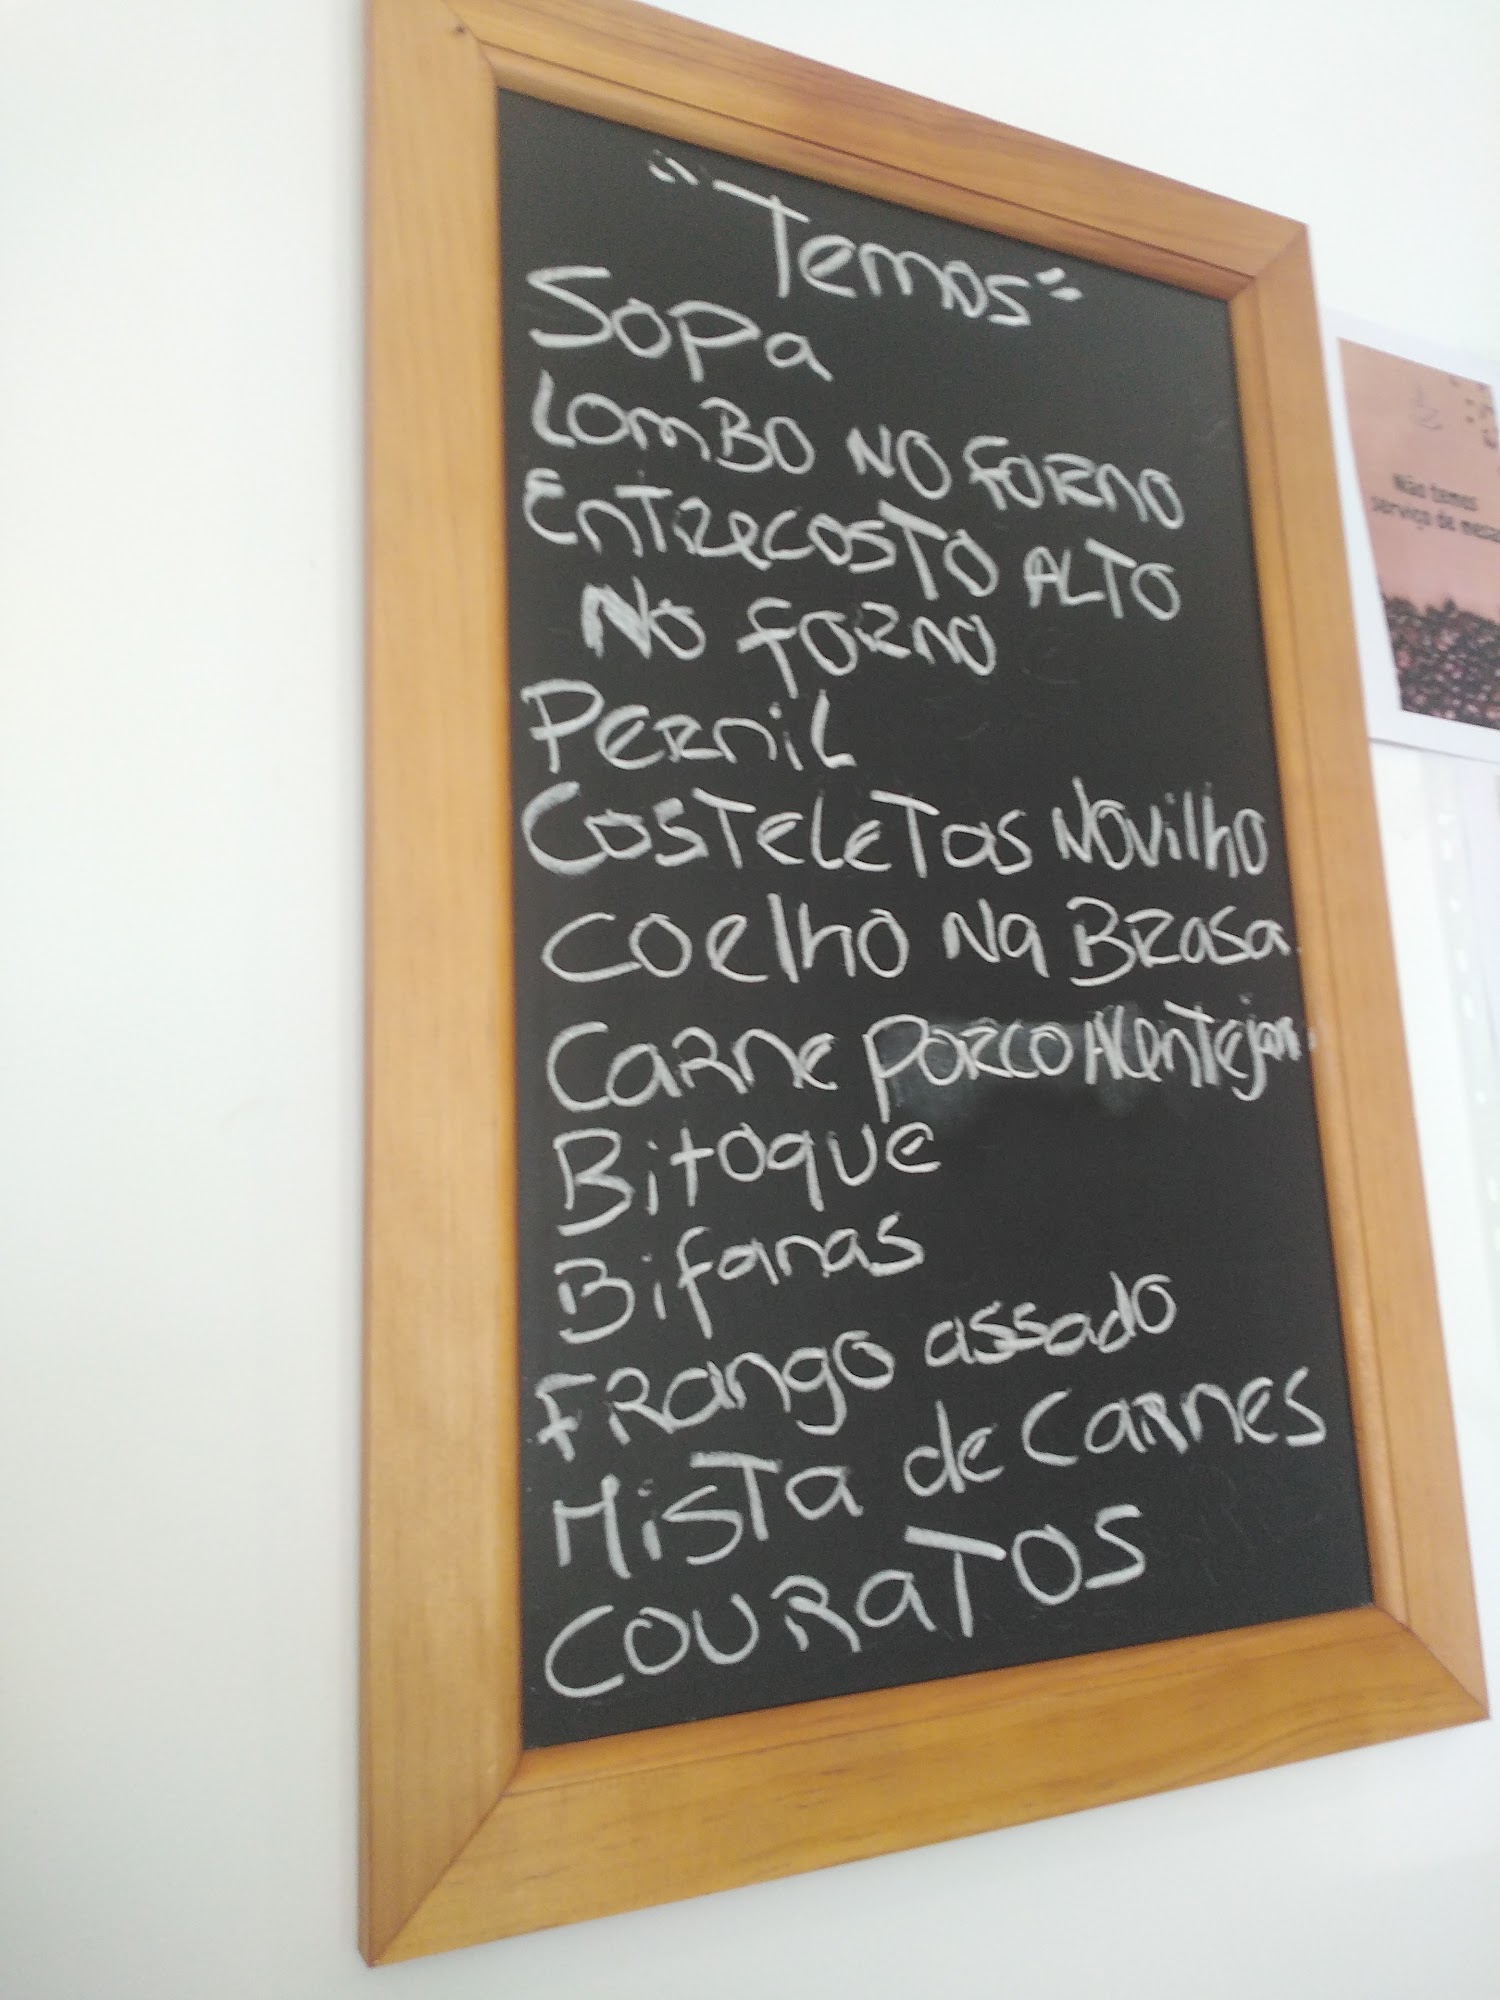 "Temos"
Sopa
Lombo no forno
Entrecosto Alto
no forno
Pernil
Costeletas Novilho
Coelho na Brasa
Carne porco Alentejan
Bitoque
Bifanas
Frango assado
Mista de Carnes
Couratos
Não temos
serviço de mesa